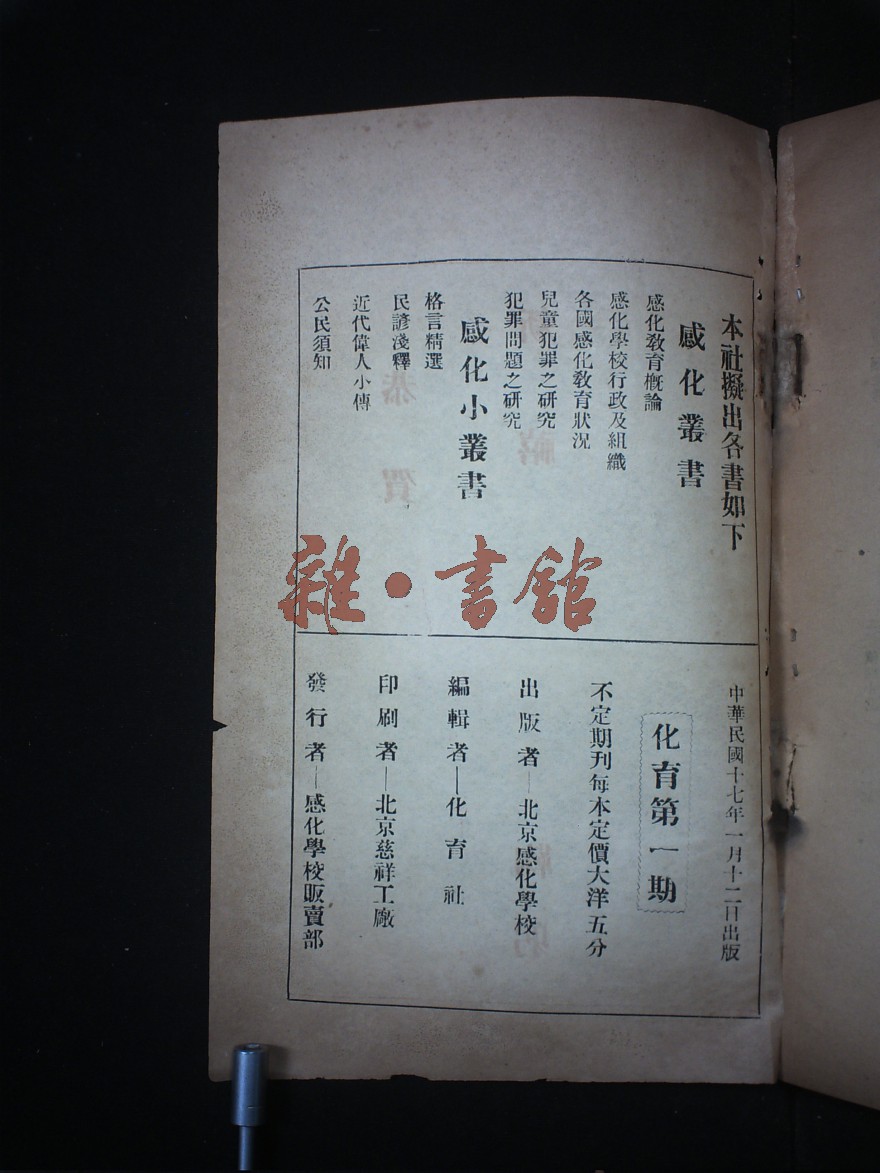 本社擬出各書如下
感化叢書
感化敎育槪論
感化學校行政及組織
各國感化敎育狀况
兒童犯罪之硏究
犯罪問題之硏究
感化小叢書
格言精選
民諺淺釋
近代偉人小傳
公民須知
雜·書館
中華民國十七年一月十二日出版
化育第一期
不定期刊每本定價大洋五分
出版者—北京感化學校
編輯者—化育社
印刷者—北京慈祥工廠
發行者—感化學校販賣部
恭賀